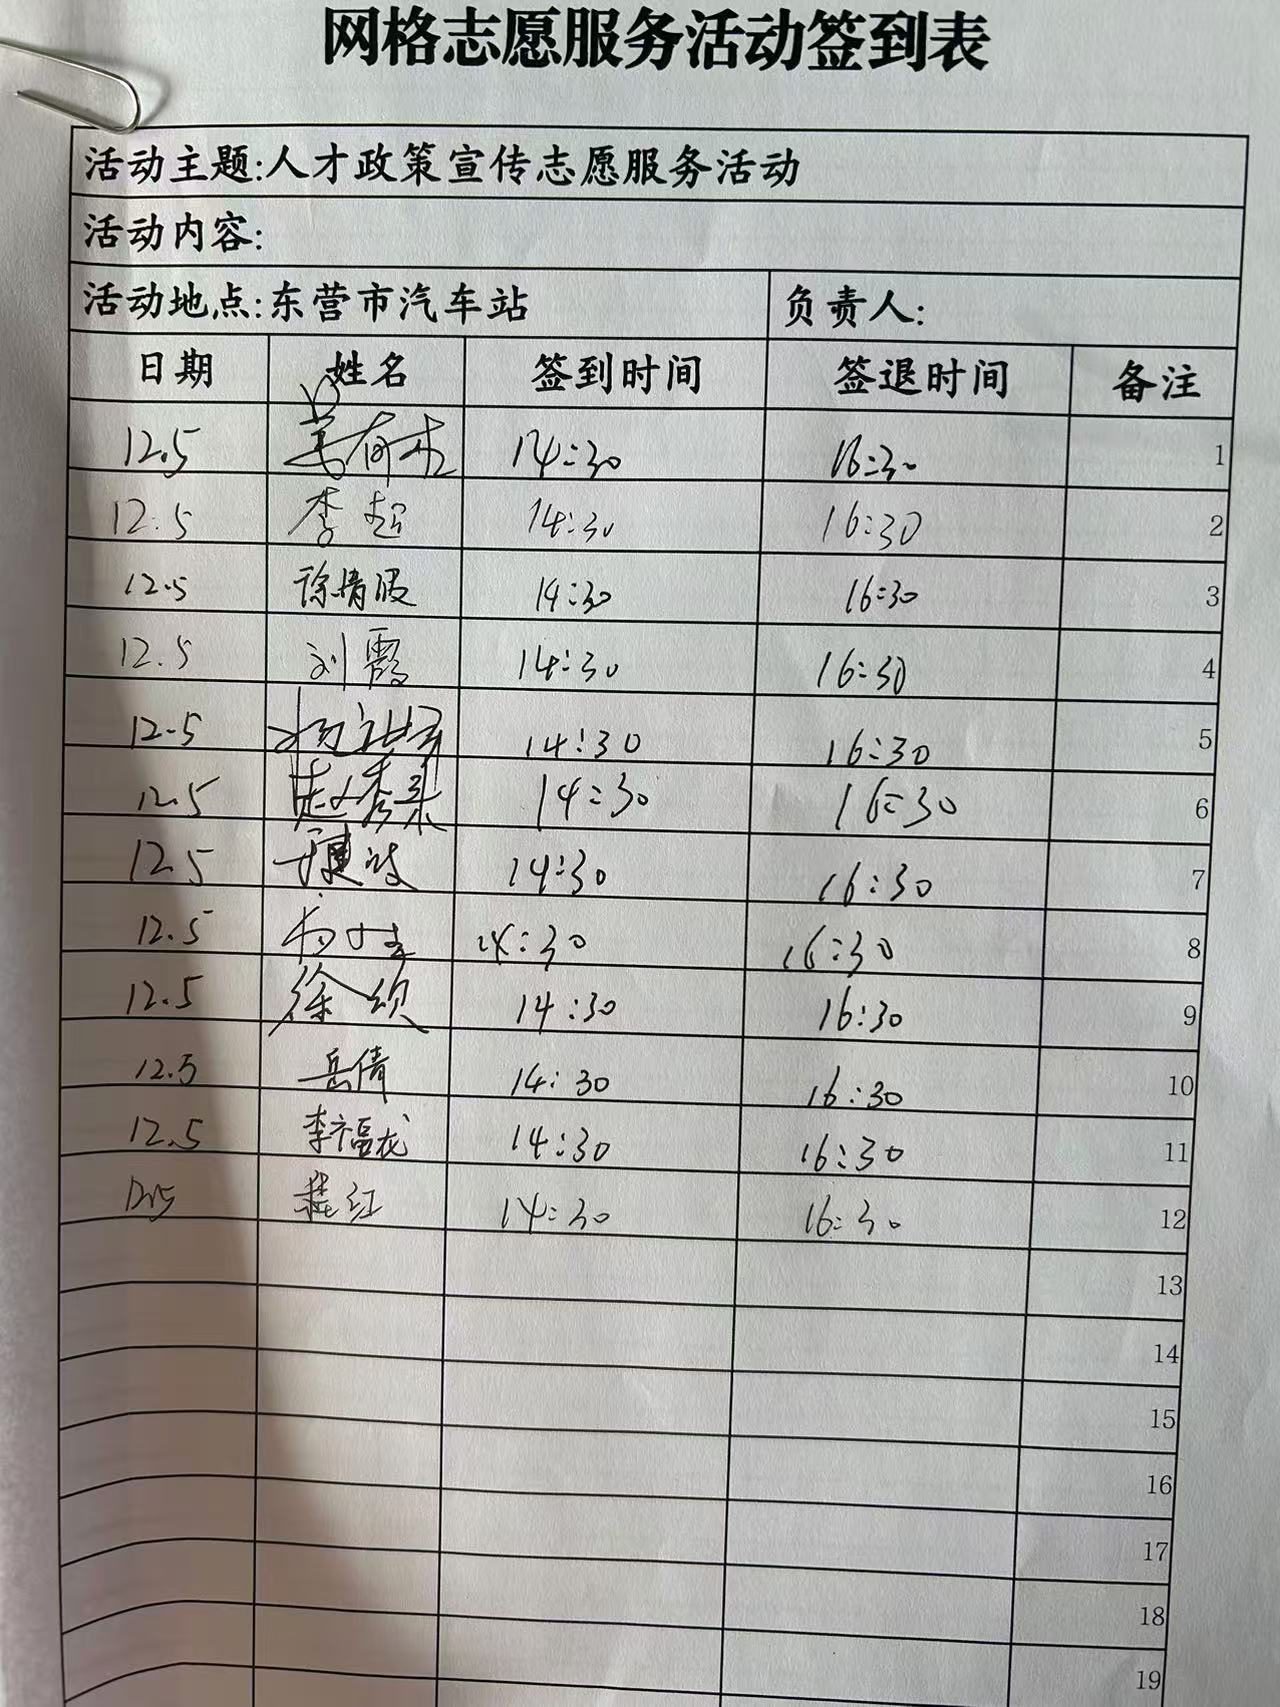 网格志愿服务活动签到表
活动主题:人才政策宣传志愿服务活动
活动内容:
活动地点:东营市汽车站 负责人:
日期 姓名 签到时间 签退时间 备注
12.5 14:30 16:30 1
12.5 李超 14:30 16:30 2
12.5 徐倩 14:30 16:30 3
12.5 刘霞 14:30 16:30 4
12.5 14:30 16:30 5
12.5 赵秀 14:30 16:30 6
12.5 14:30 16:30 7
12.5 14:30 16:30 8
12.5 徐 14:30 16:30 9
12.5 岳倩 14:30 16:30 10
12.5 李福龙 14:30 16:30 11
12.5 程红 14:30 16:30 12
13
14
15
16
17
18
19